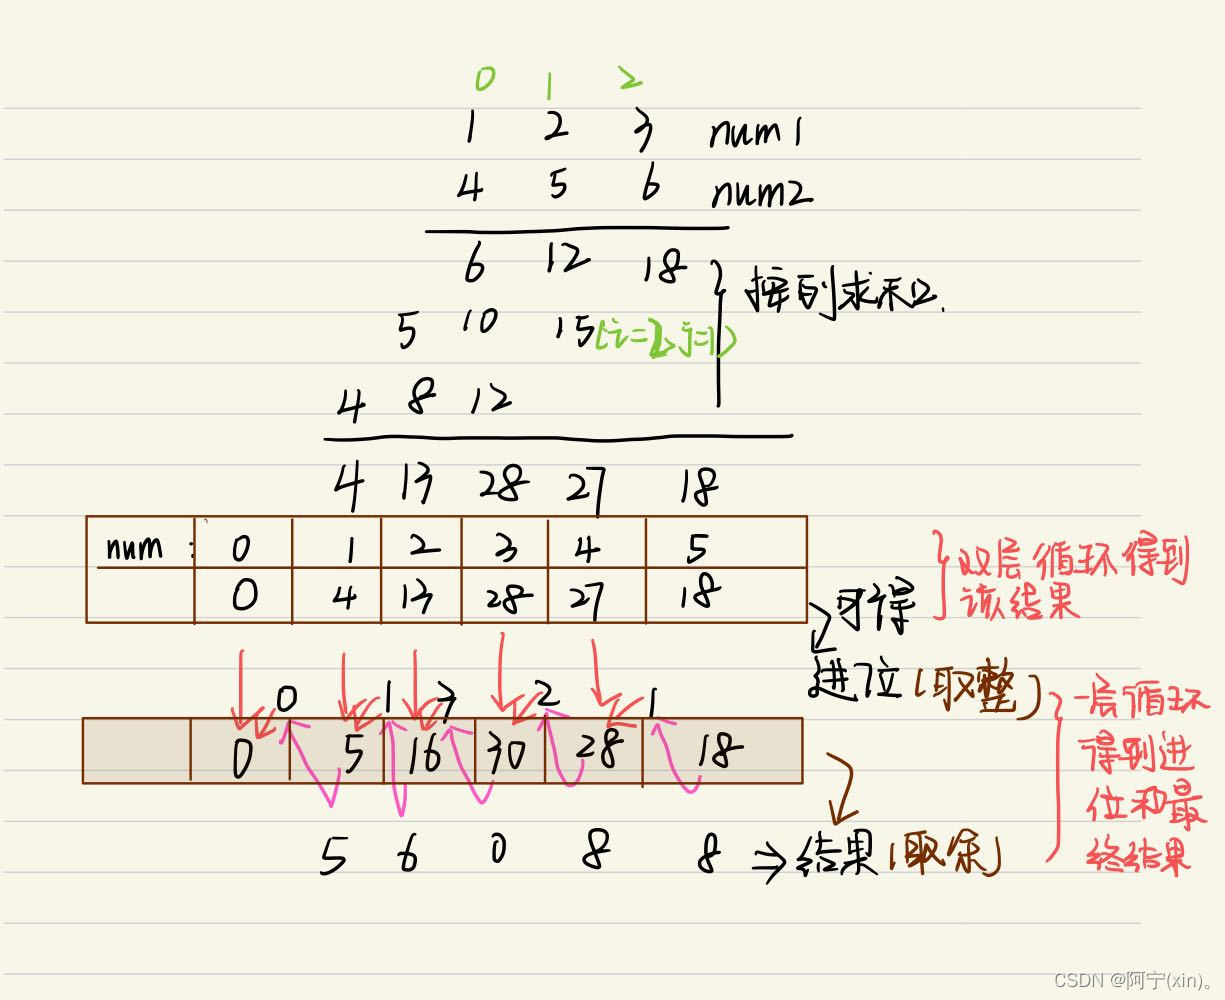 0 1 2
1 2 3 num1
4 5 6 num2
6 12 18
按列求和.
5 10 15(i=2,j=1)
4 8 12
4 13 28 27 18
num: 0 1 2 3 4 5
0 4 13 28 27 18
双层循环得到
该结果
可得
进位(取整)
0 1 3 2 1
0 5 16 30 28 18
一层循环
得到进
位和最
终结果
5 6 0 8 8 ⇒结果(取余)
CSDN @阿宁(xin)。